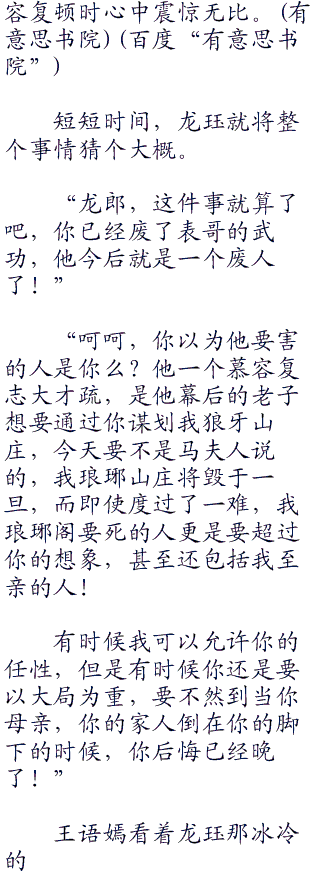 容复顿时心中震惊无比。(有
意思书院)(百度“有意思书
院”)
短短时间，龙珏就将整
个事情猜个大概。
“龙郎，这件事就算了
吧，你已经废了表哥的武
功，他今后就是一个废人
了！”
“呵呵，你以为他要害
的人是你么？他一个慕容复
志大才疏，是他幕后的老子
想要通过你谋划我狼牙山
庄，今天要不是马夫人说
的，我琅琊山庄将毁于一
旦，而即使度过了一难，我
琅琊阁要死的人更是要超过
你的想象，甚至还包括我至
亲的人！
有时候我可以允许你的
任性，但是有时候你还是要
以大局为重，要不然到当你
母亲，你的家人倒在你的脚
下的时候，你后悔已经晚
了！”
王语嫣看着龙珏那冰冷
的